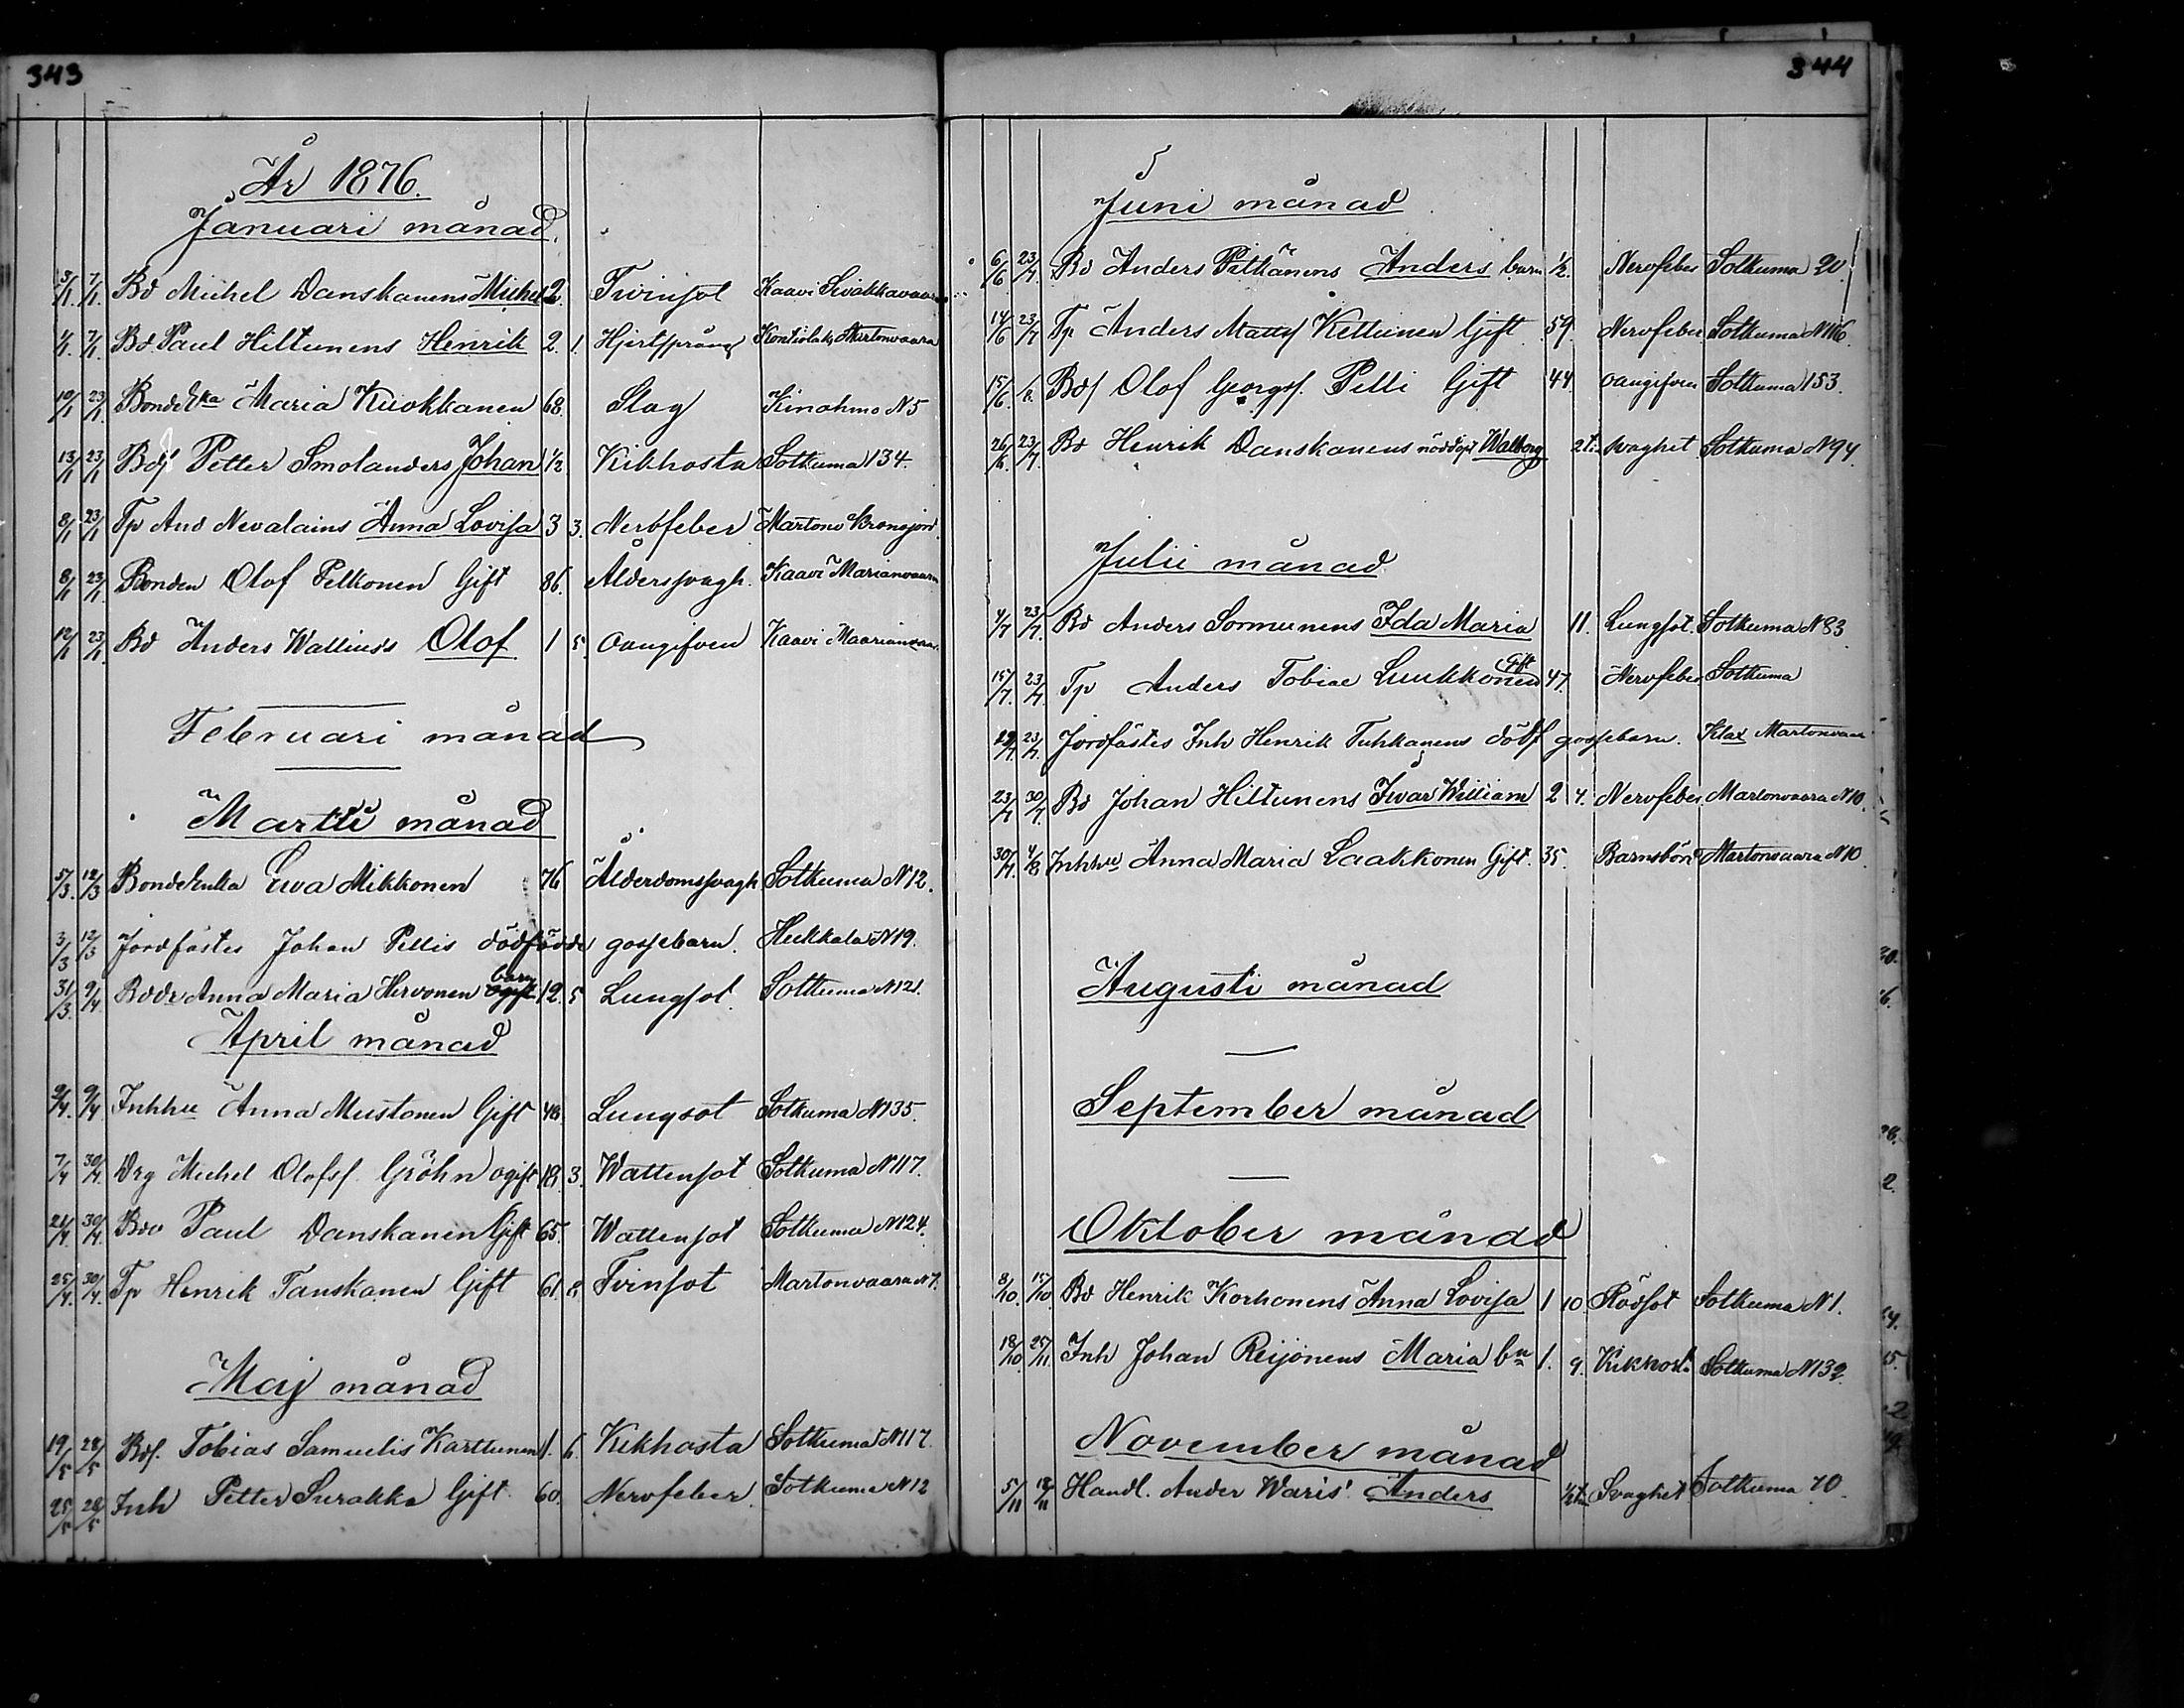 343
År 1876.
Januari månad.
3/1. 7/1. Bd Michel Danskanens Michel 2. Tvinsot Kaavi Sivakkavaara
4/1. 7/1. Bd. Paul Hiltunens Henrik 2. 1. Hjertsprång Kontiolaks Martonvaara
10/1 23/1 BondeEka Maria Kuokkanen 68. Slag Kinahmo N5
13/1 23/1 Bdf Petter Smolanders Johan 1/2 Kikhosta Sotkuma 134.
8/1 23/1 Tp And Nevalains Anna Lovisa 3 3. Nervfeber Martono Kronojord.
8/1 23/1. Bonden Olof Pelkonen Gift 86. Åldersvagh. Kaavi Marianvaara
12/1 23/1. Bd Anders Wallius's Olof 1 5. Oangifven Kaavi Maarianvaar.
Februari månad
Martii månad
5/3. 12/3 BondeEnka Ewa Mikkonen 76 Ålderdomssvagh Sotkuma N12.
3/3 12/3 Jordfästes Johan Pellis dödfödde gossebarn. Hukkala N19.
31/3. 9/4. Bddr Anna Maria Hirvonen barn 12. 5 Lungsot. Sotkuma N121.
April månad
2/4. 9/4 Inhhu Anna Mustonen Gift 48. Lungsot Sotkuma N135.
7/4 30/4. Drg Michel Olofsf. Gröhn ogift 18. 3. Wattensot Sotkuma N117.
21/4. 30/4. Bdo Paul Danskanen Gift 65. Wattensot Sotkuma N124.
25/4. 30/4. Tp Henrik Tanskanen Gift 61. 8. Tvinsot Martonvaara N7.
Maj månad
19/5 28/5 Bdf. Tobias Samuelis Karttunen 1. 6. Kikhosta Sotkuma N117.
25/5 28/5 Inh Petter Surakka Gift 60. Nervfeber Sotkuma N12
344
Juni månad
6/6 23/7. Bd Anders Pitkänens Anders barn 1/2. Nervfeber Sotkuma 20.
14/6 23/7 Tp Anders Mattsf Kettunen Gift 59. Nervfeber Sotkuma N116.
15/6. Bdf Olof Georgsf. Pelli Gift 44. oangifven Sotkuma 153.
26/6 23/7. Bd Henrik Danskanens nöddöpt Walborg 2t. svaghet Sotkuma N94.
Julii månad
4/7 23/7. Bd Anders Sormunens Ida Maria 11. Lungsot. Sotkuma N83
15/7. 23/7. Tp Anders Tobiae Luukkonen Gift 47. Nervfeber Sotkuma
23/7. Jordfästes Inh Henrik Tuhkanens dödf gossebarn. Klax Martonvaar
23/7 30/7. Bd Johan Hiltunens Ivar William 2 4. Nervfeber Martonvaara N10.
30/7 4/8 Inhhu Anna Maria Laakkonen Gift. 35. Barnsbörd Martonvaara N10.
Augusti månad
September månad
Oktober månad
8/10. 15/10 Bd Henrik Korhonens Anna Lovisa 1 10. Rödsot Sotkuma N1.
18/10 25/11. Inh Johan Reijonens Maria bn 1. 9. Kikhosta Sotkuma N132
November månad
5/11 12/11 Handl. Ander Waris' Anders 1/2t Svaghet Sotkuma 70.